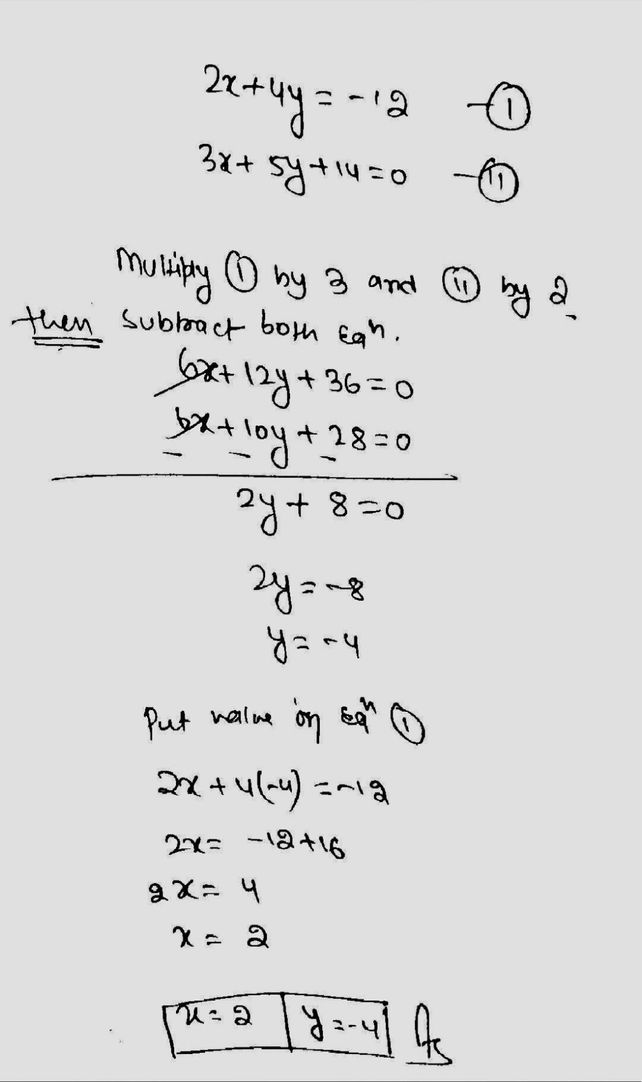 2x+4y = -12 —①
3x+ 5y+14=0 —⑪
Multiply ① by 3 and ⑪ by 2
then subtract both Eqn.
6x+12y+36=0
6x+10y+28=0
- - -
2y+ 8=0
2y=-8
y=-4
Put value in Eqn ①
2x+4(-4) =-12
2x= -12+16
2x= 4
x= 2
x=2 y=-4 As